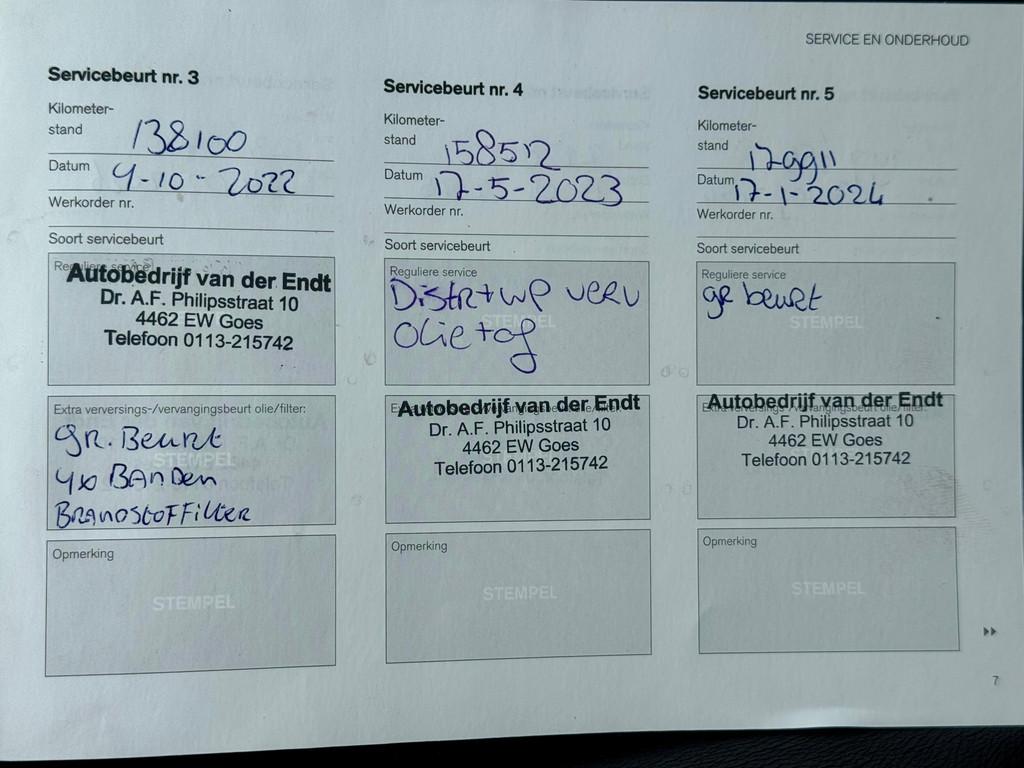 SERVICE EN ONDERHOUD
Servicebeurt nr. 3
Kilometer-
stand 138100
Datum 4-10-2022
Werkorder nr.
Soort servicebeurt
Reguliere service
Autobedrijf van der Endt
Dr. A.F. Philipsstraat 10
4462 EW Goes
Telefoon 0113-215742
Extra verversings-/vervangingsbeurt olie/filter:
gr. Beurt
STEMPEL
4x BANDen
BRANDSTOFFilter
Opmerking
STEMPEL
Servicebeurt nr. 4
Kilometer-
stand 158512
Datum 17-5-2023
Werkorder nr.
Soort servicebeurt
Reguliere service
Distr + WP verv
STEMPEL
Olie + of
Extra verversings-/vervangingsbeurt olie/filter:
Autobedrijf van der Endt
Dr. A.F. Philipsstraat 10
4462 EW Goes
Telefoon 0113-215742
Opmerking
STEMPEL
Servicebeurt nr. 5
Kilometer-
stand 179911
Datum 17-1-2024
Werkorder nr.
Soort servicebeurt
Reguliere service
gr beurt
STEMPEL
Extra verversings-/vervangingsbeurt olie/filter:
Autobedrijf van der Endt
Dr. A.F. Philipsstraat 10
4462 EW Goes
Telefoon 0113-215742
Opmerking
STEMPEL
7